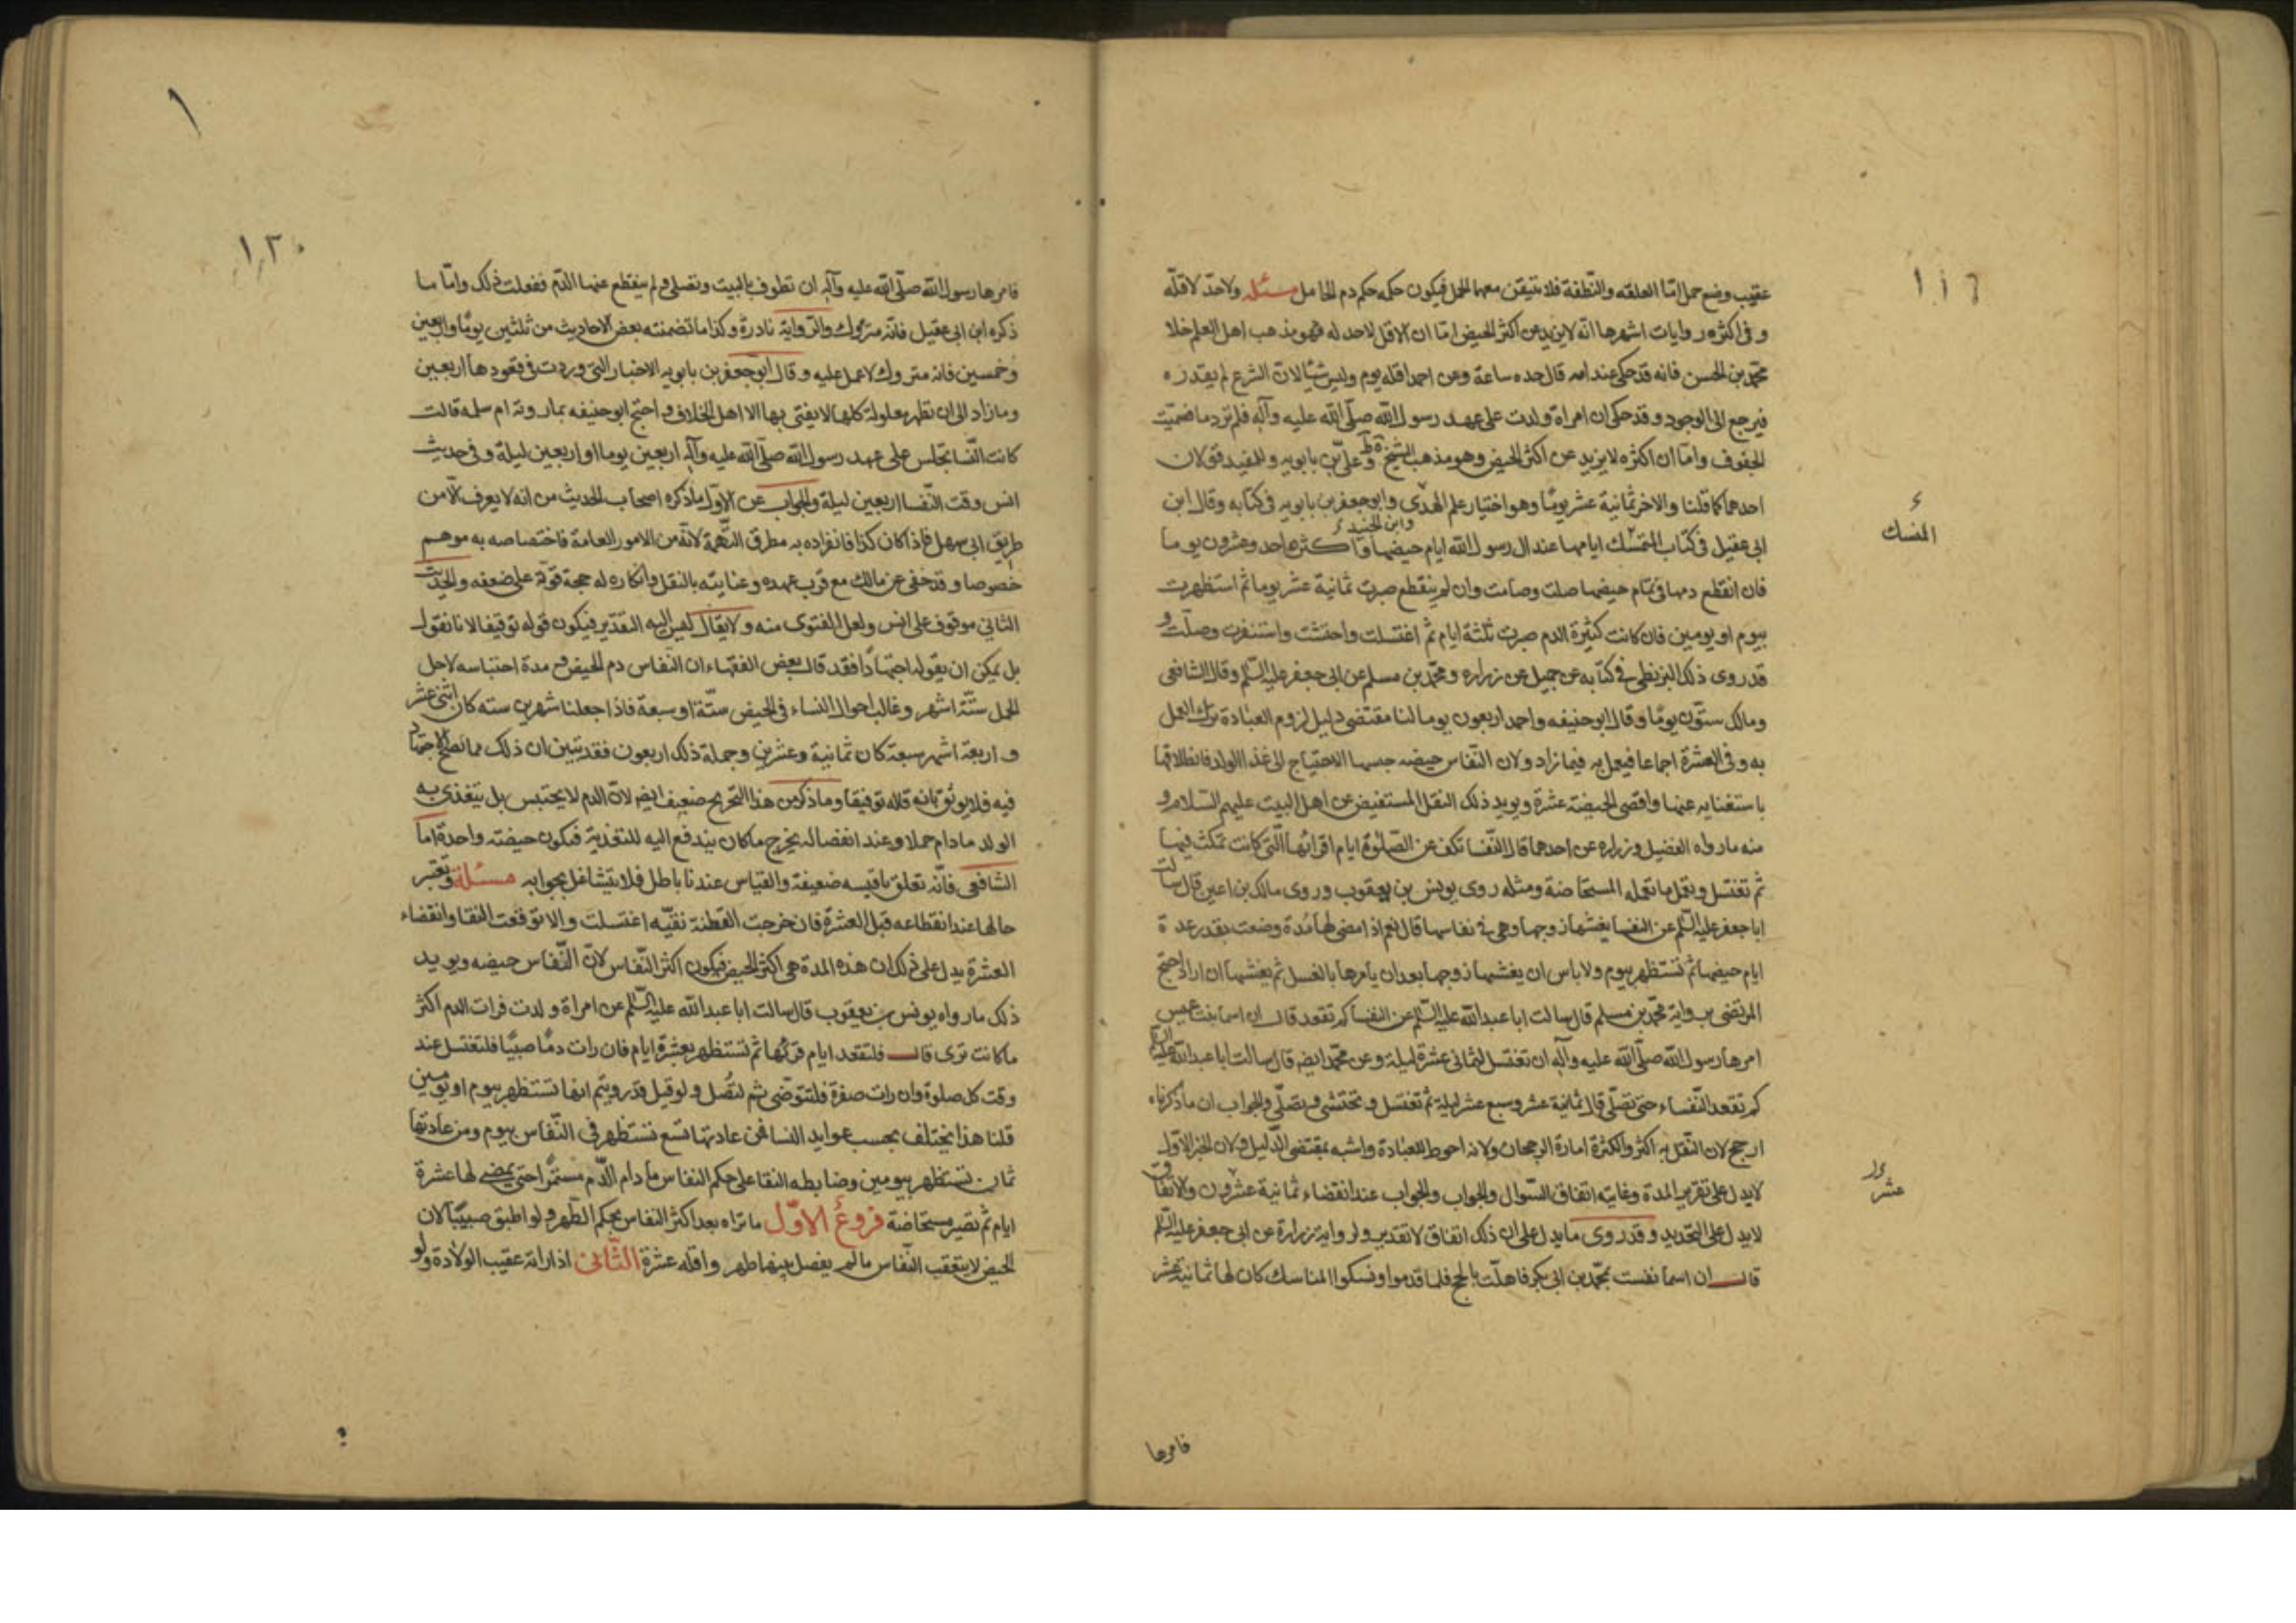 عقيب وضع حمل امّا العلقه والنّطفة فلا نتيقن معهما الحمل فيكون حكمه حكم دم الحامل مسئله ولا حدّ لاقلّه
وفى اكثره روايات اشهرها انّه لا يزيد عن اكثر الحيض امّا ان الاقل لا حد له فهو مذهب اهل العلم خلا
محمّد بن الحسن فانه قد حكى عنه انه قال حده ساعة وعن احمد اقله يوم وليس شيئا لان الشرع لم يقدره
فيرجع الى الوجود وقد حكى ان امراة ولدت على عهد رسول الله صلّى الله عليه وآله فلم تر دما فسمّيت
الجفوف وامّا ان اكثره لا يزيد عن اكثر الحيض وهو مذهب الشيخ وعلىّ بن بابويه وللمفيد قولان
احدهما كما قلنا والاخر ثمانية عشر يومًا وهو اختيار علم الهدى وابو جعفر بن بابويه فى كتابه وقال ابن
وابن الجنيد
المنسك
ابى عقيل فى كتاب المتمسّك ايامها عند ال رسول الله ايام حيضها واكثره احد وعشرون يوما
فان انقطع دمها فى تمام حيضها صلت وصامت وان لم ينقطع صبرت ثمانية عشر يوما ثم استظهرت
بيوم او يومين فان كانت كثيرة الدم صبرت ثلثة ايام ثم اغتسلت واحتشت واستثفرت وصلّت و
قد روى ذلك البزنطى فى كتابه عن جميل عن زراره ومحمّد بن مسلم عن ابى جعفر عليه السّلم وقال الشافعى
ومالك ستّون يومًا وقال ابو حنيفه واحمد اربعون يوما لنا مقتضى دليل لزوم العبادة ترك العمل
به وفى العشرة اجماعا فيعمل به فيما زاد ولان النّفاس حيضه حبسها الاحتياج الى غذا الولد فانطلاقها
باستغنايه عنها واقصى الحيضة عشرة ويويد ذلك النقل المستفيض عن اهل البيت عليهم السلام و
منه ما رواه الفضيل وزراره عن احدهما قال النّفسا تكف عن الصّلوة ايام اقرائها الّتى كانت تمكث فيها
ثم تغتسل وتعمل ما تعمله المستحاضة ومثله روى يونس بن يعقوب وروى مالك بن اعين قال سالت
ابا جعفر عليه السّلم عن النفسا يغشيها زوجها وهى فى نفاسها قال نعم اذا مضى لها مُدة وضعت بقدر عدة
ايام حيضها ثم تستظهر بيوم ولا باس ان يغشيها زوجها بعد ان يامرها بالغسل ثم يغشيها ان اراد احتج
المرتضى برواية محمّد بن مسلم قال سالت ابا عبد الله عليه السّلم عن النفسا كم تقعد قال ان اسما بنت عميس
امرها رسول الله صلّى الله عليه وآله ان تغتسل لثمانى عشرة ليلة وعن محمّد ايضه قال سالت ابا عبد الله عليه السلم
كم تقعد النّفساء حتى تصلّى قال ثمانية عشر وسبع عشر ليلة ثم تغتسل وتحتشى وتصلّى والجواب ان ما ذكرناه
ارجح لان النّقل به اكثر والكثرة امارة الرجحان ولانه احوط للعبادة واشبه بمقتضى الدّليل ولان الخبر الاوّل
عشر
لا يدل على تقرير المدة وغايته اتفاق السّوال والجواب والجواب عند انقضاء ثمانية عشرون والاتفاق
لا يدل على التّحديد وقد روى ما يدل على ان ذلك اتفاق لا تقدير ولرواية زرارة عن ابى جعفر عليه السّلم
قال ان اسما نفست بمحمّد بن ابى بكر فاهلّت بالحج فلما قدموا ونسكوا المناسك كان لها ثمانية عشر
فامرها
١٣٠
فامرها رسول الله صلّى الله عليه وآله ان تطوف بالبيت وتصلى ولم ينقطع عنها الدّم ففعلت ذلك وامّا ما
ذكره ابن ابى عقيل فانّه متروك والرّواية نادرة وكذا ما تضمنته بعض الاحاديث من ثلثين يومًا واربعين
وخمسين فانه متروك لا عمل عليه وقال ابو جعفر بن بابويه الاخبار التى وردت فى قعودها اربعين
وما زاد الى ان تطهر معلولة كلها لا يفتى بها الا اهل الخلاف واحتج ابو حنيفه بما روته ام سلمه قالت
كانت النّسا تجلس على عهد رسول الله صلّى الله عليه وآله اربعين يوما او اربعين ليلة وفى حديث
انس وقت النّفسا اربعين ليلة والجواب عن الاوّل ما ذكره اصحاب الحديث من انه لا يعرف الّا من
طريق ابى سهل فاذا كان كذا فانفراده به مطرق التّهمة لانّه من الامور العامة فاختصاصه به موهم
خصوصا وقد خفى عن مالك مع قرب عهده وعنايته بالنقل وانكاره له حجة قويّة على ضعفه والحديث
الثانى موقوف على انس ولعل الفتوى منه ولا يقال ليس اليه التقدير فيكون قوله توقيفا لانا نقول
بل يمكن ان يقوله اجتهادًا فقد قال بعض الفقهاء ان النّفاس دم الحيض ومدة احتباسه لاجل
الحمل ستّة اشهر وغالب احوال النساء فى الحيض ستّة او سبعة فاذا جعلنا شهرين سته كان اثنى عشر
واربعة اشهر سبعة كان ثمانية وعشرين وجملة ذلك اربعون فقد تبين ان ذلك مما يصلح الاجتهاد
فيه فلا يوثق بانه قاله توقيفا وما ذكره من هذا التخريج ضعيف ايضه لانّ الدم لا يحتبس بل يتغذى به
الولد ما دام حملا وعند انفصاله يخرج ما كان يندفع اليه للتغذية فيكون حيضته واحدة اما
الشافعى فانّه تعلق باقيسه ضعيفة والقياس عندنا باطل فلا يتشاغل بجوابه مسئلة وتعتبر
حالها عند انقطاعه قبل العشرة فان خرجت القطنة نقيّه اغتسلت والا توقعت النقا وانقضاء
العشرة يدل على ذلك ان هذه المدة هى اكثر الحيض فيكون اكثر النّفاس لانّ النّفاس حيضه ويويد
ذلك ما رواه يونس بن يعقوب قال سالت ابا عبد الله عليه السّلم عن امراة ولدت فرات الدم اكثر
ما كانت ترى قال فلتقعد ايام قرئها ثم تستظهر بعشرة ايام فان رات دمًا صبيًا فلتغتسل عند
وقت كل صلوة وان رات صفرة فلتتوضّى ثم لتُصل ولو قيل قد رويتم انها تستظهر بيوم او يومين
قلنا هذا يختلف بحسب عوايد النسا فمن عادتها تسع تستظهر فى النّفاس بيوم ومن عادتها
ثمان تستظهر بيومين وضابطه البقا على حكم النفاس ما دام الدّم مستمرًا حتى يمضى لها عشرة
ايام ثم تصير مستحاضة فروع الاوّل ما تراه بعد اكثر النفاس بحكم الطّهر ولو اطبق صبيبًا لان
الحيض لا يتعقب النّفاس ما لم يفصل بينهما طهر واقله عشرة الثّانى اذا راته عقيب الولادة ولو